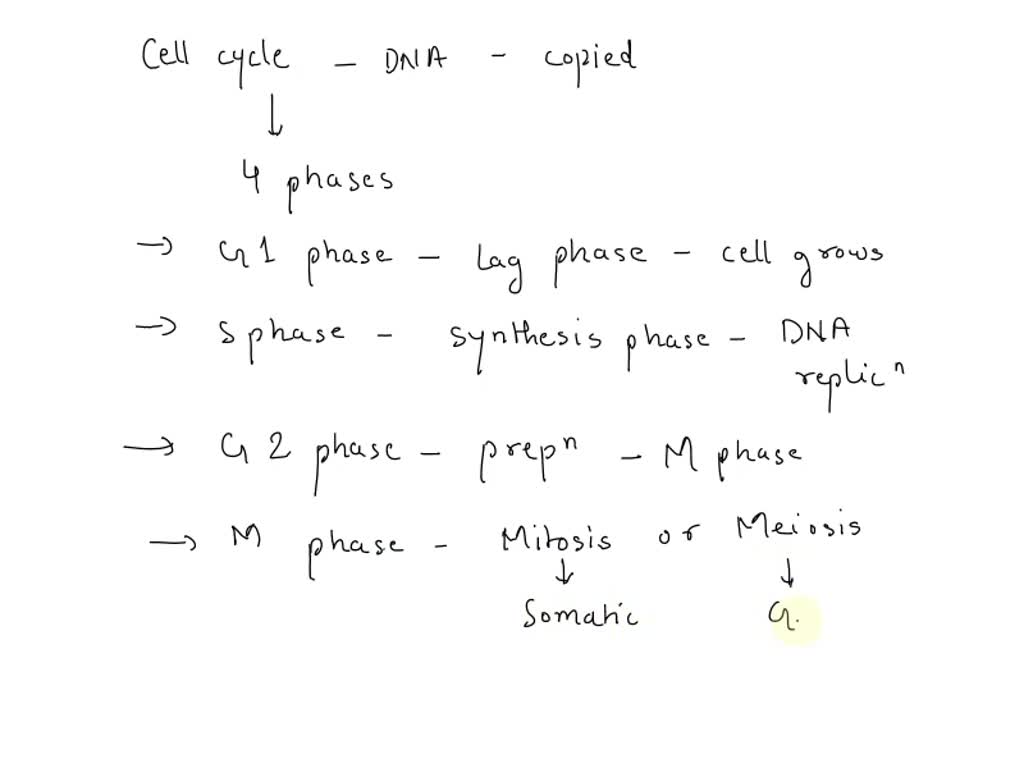 Cell cycle - DNA - copied
↓
4 phases
→ G1 phase - Lag phase - cell grows
→ S phase - synthesis phase - DNA
replicⁿ
→ G2 phase - prepⁿ - M phase
→ M phase - Mitosis or Meiosis
↓ ↓
Somatic G.